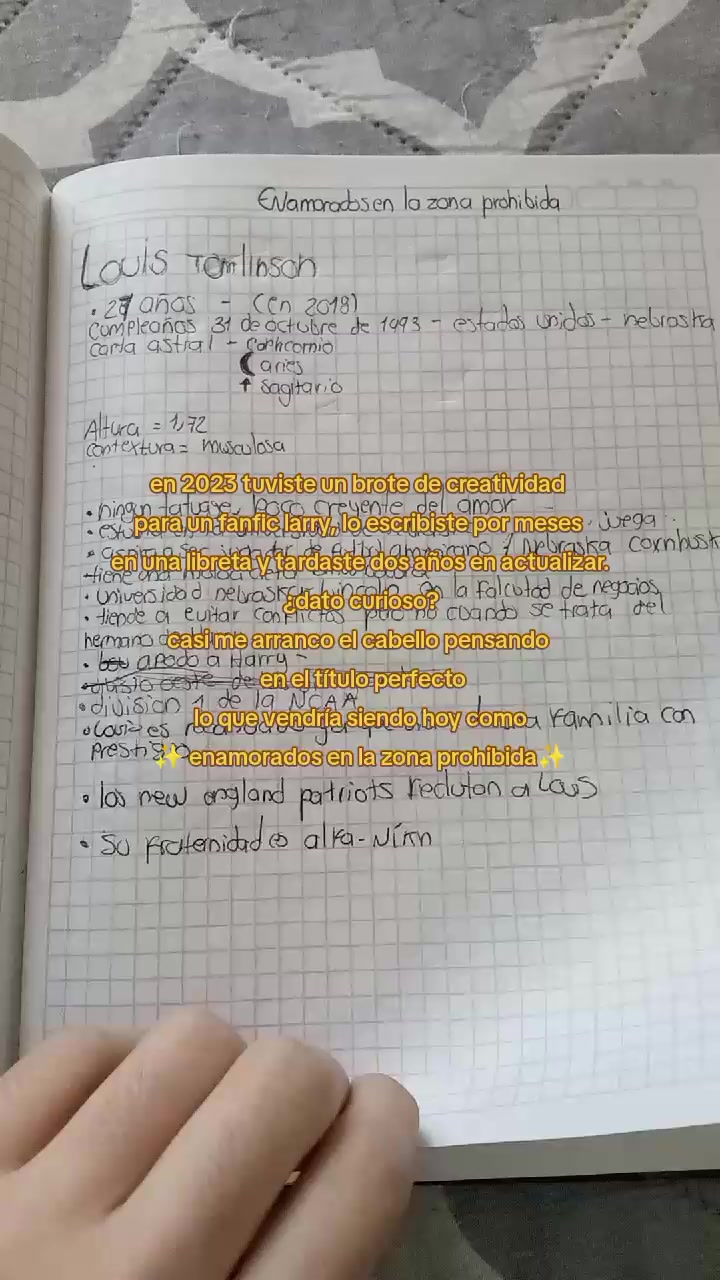 Enamorados en la zona prohibida
Louis Tomlinson
• 27 años - (en 2018)
cumpleaños 31 de octubre de 1993 - estados unidos - nebraska
carta astral -
☾ aries
↑ sagitario
Altura = 1,72
contextura = musculosa
en 2023 tuviste un brote de creatividad
• ningun tatuaje, loco creyente del amor
para un fanfic larry, lo escribiste por meses
juega
en una libreta y tardaste dos años en actualizar.
• universidad nebraska lincoln en la falcutad de negocios
¿dato curioso?
• tiende a evitar conflictos pero no cuando se trata del
hermano
casi me arranco el cabello pensando
• apodo a Harry -
en el título perfecto
• division 1 de la NCAA
lo que vendría siendo hoy como
familia con
prestigio
✨ enamorados en la zona prohibida ✨
• los new england patriots reclutan a Louis
• Su fraternidad es